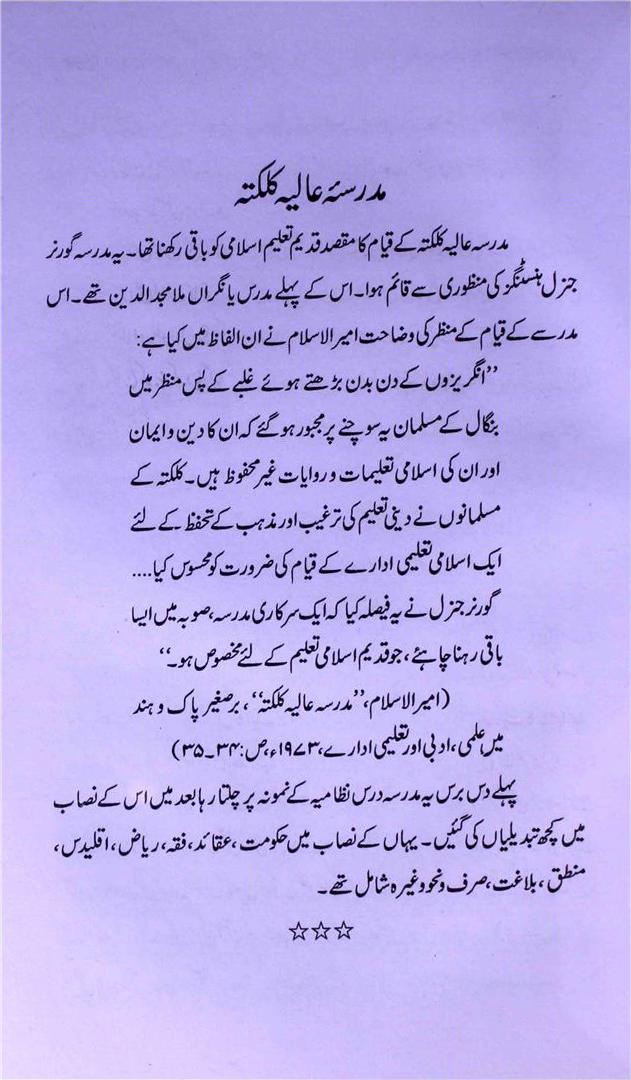 مدرسۂ عالیہ کلکتہ
مدرسہ عالیہ کلکتہ کے قیام کا مقصد قدیم تعلیم اسلامی کو باقی رکھنا تھا۔ یہ مدرسہ گورنر
جنرل ہنسٹنگز کی منظوری سے قائم ہوا۔ اس کے پہلے مدرس یا نگراں ملا مجد الدین تھے۔ اس
مدرسے کے قیام کے منظر کی وضاحت امیر الاسلام نے ان الفاظ میں کیا ہے:
”انگریزوں کے دن بدن بڑھتے ہوئے غلبے کے پس منظر میں
بنگال کے مسلمان یہ سوچنے پر مجبور ہو گئے کہ ان کا دین و ایمان
اور ان کی اسلامی تعلیمات و روایات غیر محفوظ ہیں۔ کلکتہ کے
مسلمانوں نے دینی تعلیم کی ترغیب اور مذہب کے تحفظ کے لئے
ایک اسلامی تعلیمی ادارے کے قیام کی ضرورت کو محسوس کیا....
گورنر جنرل نے یہ فیصلہ کیا کہ ایک سرکاری مدرسہ، صوبہ میں ایسا
باقی رہنا چاہئے، جو قدیم اسلامی تعلیم کے لئے مخصوص ہو۔“
(امیر الاسلام، ”مدرسہ عالیہ کلکتہ“، برصغیر پاک و ہند
میں علمی، ادبی اور تعلیمی ادارے، ۱۹۷۳ء، ص: ۳۴۔۳۵)
پہلے دس برس یہ مدرسہ درس نظامیہ کے نمونہ پر چلتا رہا بعد میں اس کے نصاب
میں کچھ تبدیلیاں کی گئیں۔ یہاں کے نصاب میں حکومت، عقائد، فقہ، ریاض، اقلیدس،
منطق، بلاغت، صرف و نحو وغیرہ شامل تھے۔
☆☆☆